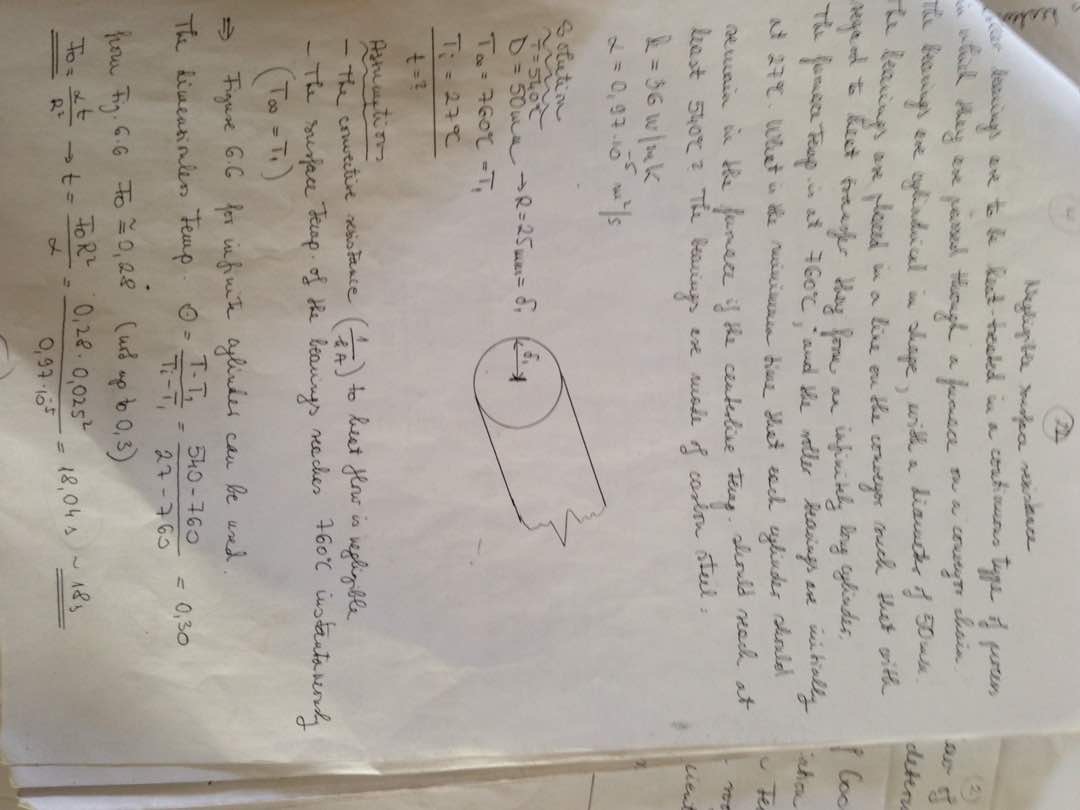 2
Negligible surface resistance
Roller bearings are to be heat-treated in a continuous type of process
in which they are passed through a furnace on a conveyor chain.
The bearings are cylindrical in shape, with a diameter of 50 mm.
The bearings are placed in a line on the conveyor such that with
regard to heat transfer they form an infinitely long cylinder.
The furnace temp is at 760°C, and the roller bearings are initially
at 27°C. What is the minimum time that each cylinder should
remain in the furnace if the centerline temp. should reach at
least 540°C? The bearings are made of carbon steel:
k = 36 W/mK
α = 0,97·10⁻⁵ m²/s
Solution
T=540°C
D = 50 mm → R = 25 mm = δ₁
T∞ = 760°C = T₁
Ti = 27°C
t = ?
δ₁
Assumptions
- The convective resistance (1/hA) to heat flow is negligible
- The surface temp. of the bearings reaches 760°C instantaneously
(T∞ = T₁)
⇒ Figure 6.6 for infinite cylinder can be used.
The dimensionless temp. Θ = (T-T₁)/(Ti-T₁) = (540-760)/(27-760) = 0,30
from Fig. 6.6 Fo ≅ 0,28 (up to 0,3)
Fo = αt/R² → t = FoR²/α = 0,28·0,025²/0,97·10⁻⁵ = 18,04 s ~ 18s
(2)